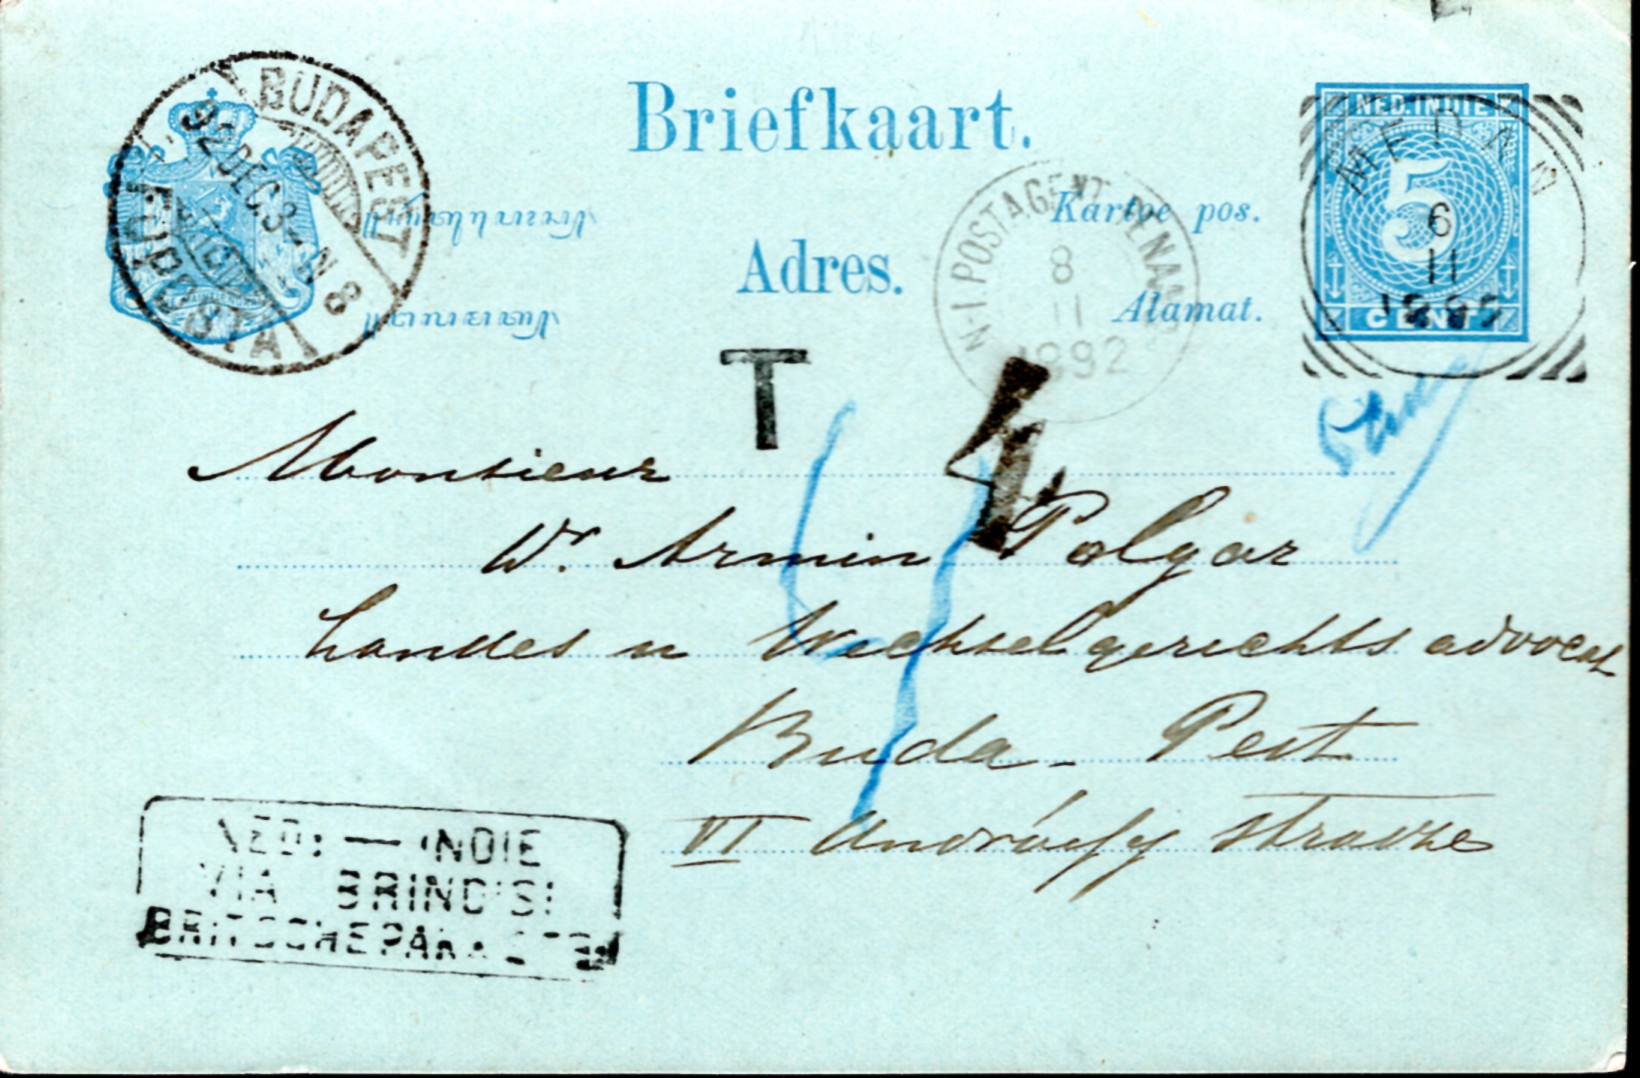 Briefkaart.
Kartoe pos.
Adres.
Alamat.
NED. INDIE
5
CENT
MEDAN
6
11
1892
BUDAPEST
92 DEC. 3 - N 8
FŐPOSTA
N-I POSTAGENT PENANG
8
11
1892
T
Monsieur
Dr. Armin Polgar
Landes u Wechselgerichts advocat
Buda - Pest
VI Andrássy strasse
NED: — INDIE
VIA BRINDISI
BRITSCHE PAK